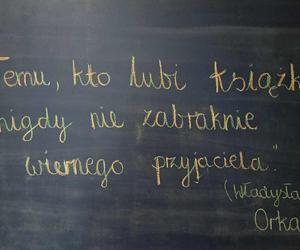 Temu, kto lubi książk
nigdy nie zabraknie
wiernego przyjaciela."
(Władysła
Orka